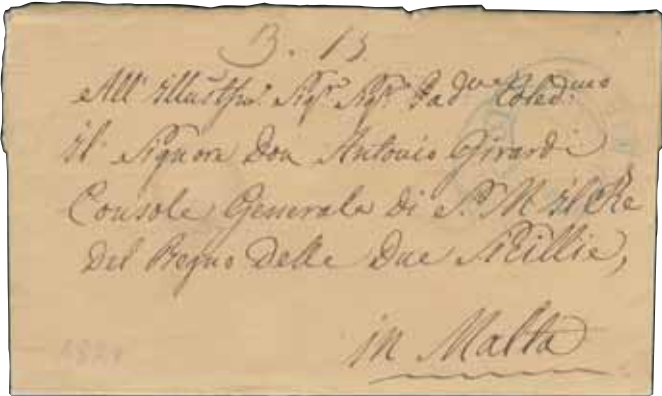 B. 13.
All' Illust.mo Sig.r Sig.r Pad.ne Colend.mo
Il Signore Don Antonio Girardi
Console Generale Di S. M. il Re
Del Regno Delle Due Sicillie,
in Malta